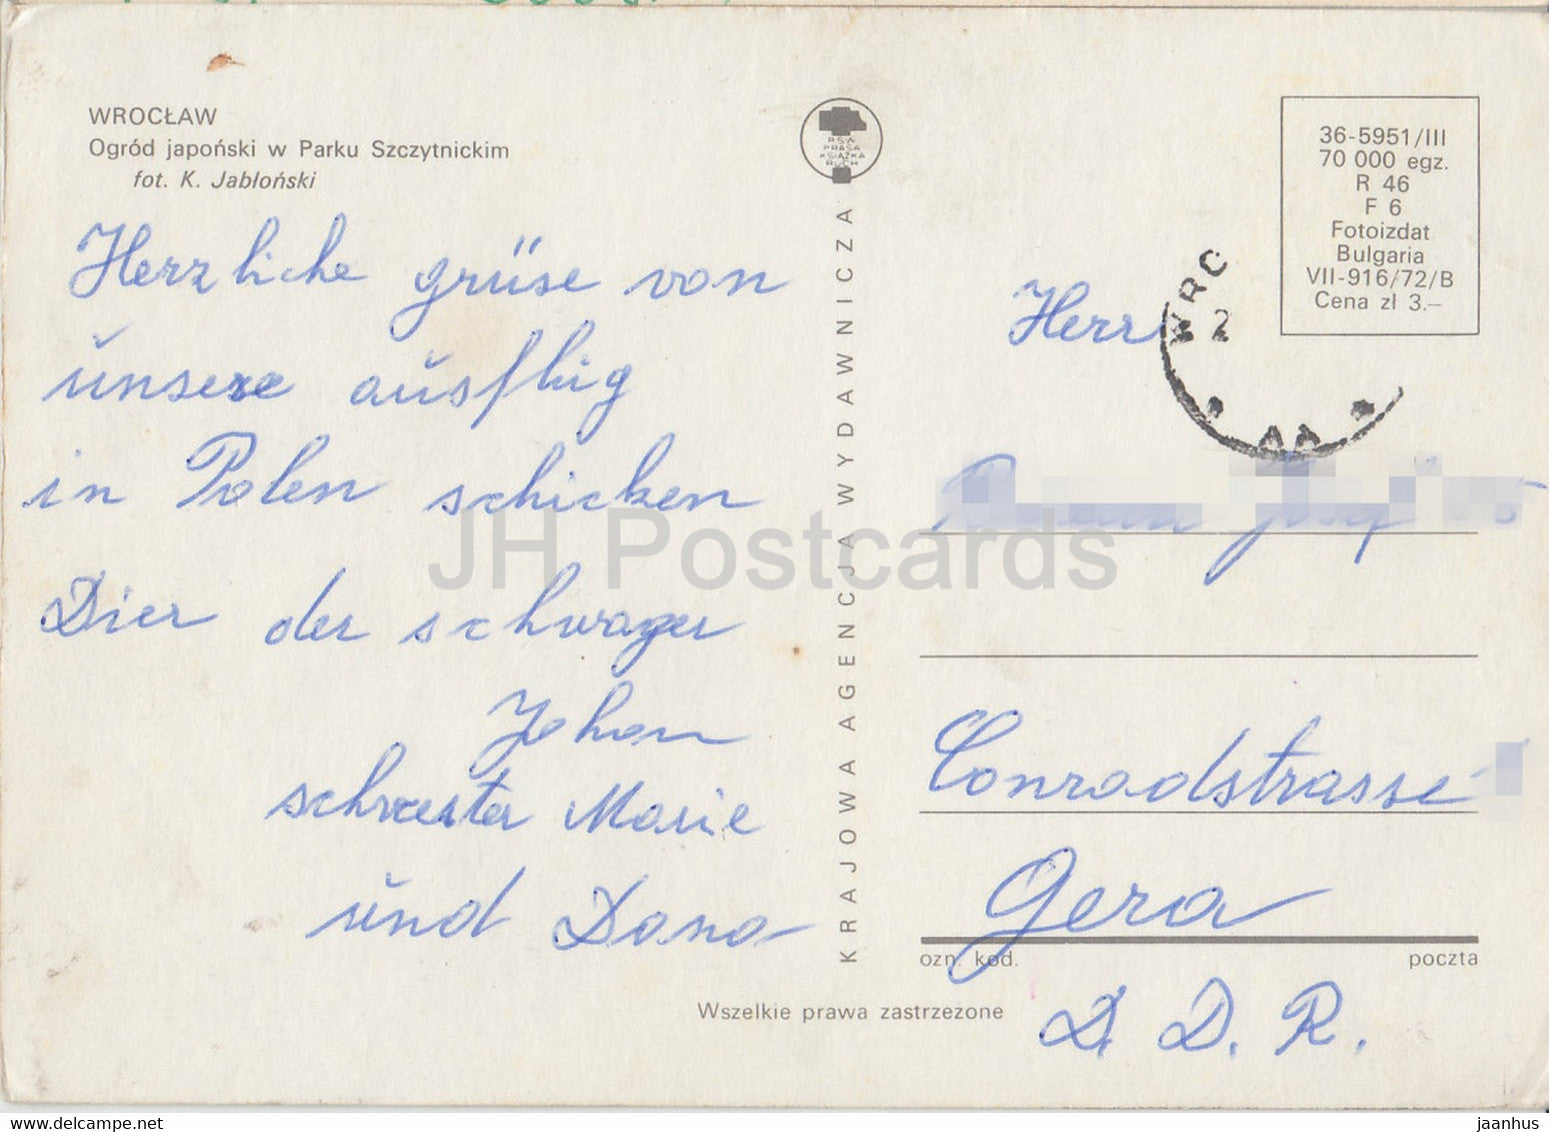 WROCŁAW
Ogród japoński w Parku Szczytnickim
fot. K. Jabłoński
Herzliche grüse von
ünsere aüsflüg
in Polen schicken
Dier der schwager
Johan
schwester Marie
ünd Dana
RSW
PRASA
KSIĄŻKA
RUCH
KRAJOWA AGENCJA WYDAWNICZA
36-5951/III
70 000 egz.
R 46
F 6
Fotoizdat
Bulgaria
VII-916/72/B
Cena zł 3.—
WRC
2
Herr
Josef
Conradstrasse
Gera
ozn. kod. poczta
D. D. R.
Wszelkie prawa zastrzeżone
JH Postcards
jaanhus